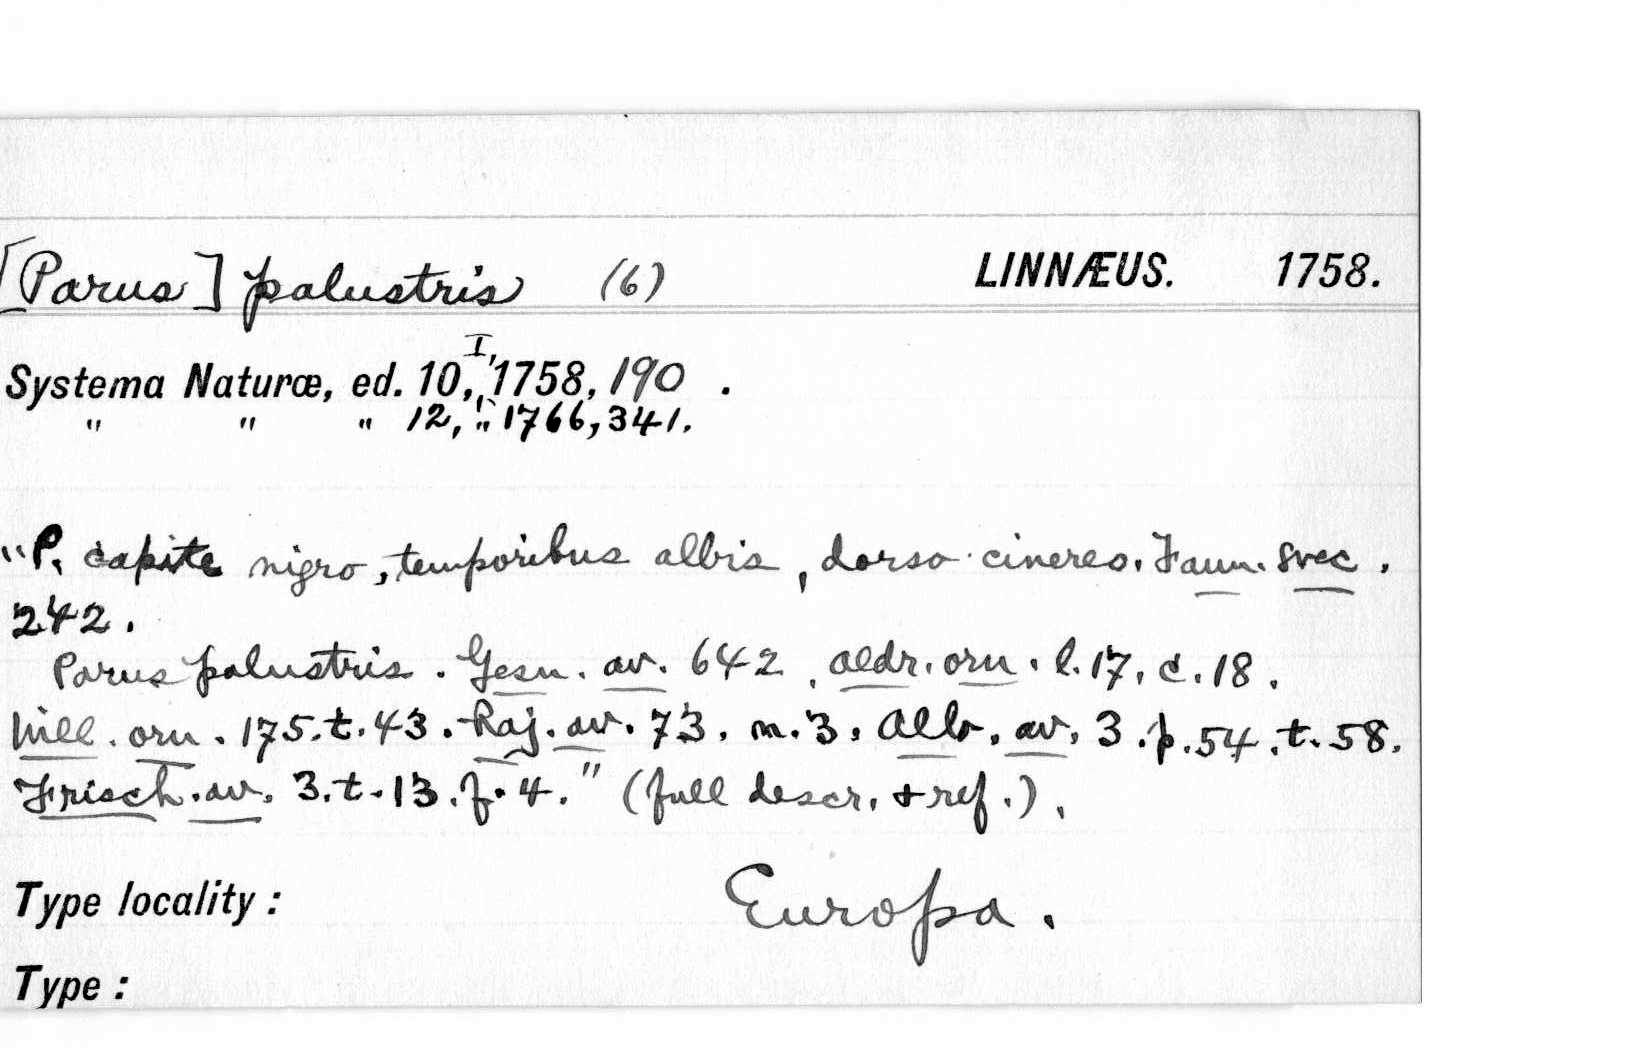 [Parus] palustris (6) LINNÆUS. 1758.
Systema Naturæ, ed. 10, I, 1758, 190 .
" " " 12, ", 1766, 341.
"P. capite nigro, temporibus albis, dorso cinereo. Faun. svec.
242.
Parus palustris. Gesn. av. 642. aldr. orn. l. 17, c. 18.
Will. orn. 175. t. 43. Raj. av. 73. n. 3. Alb. av. 3. p. 54. t. 58.
Frisch. av. 3. t. 13. f. 4." (full descr. + ref.).
Type locality : Europa.
Type :